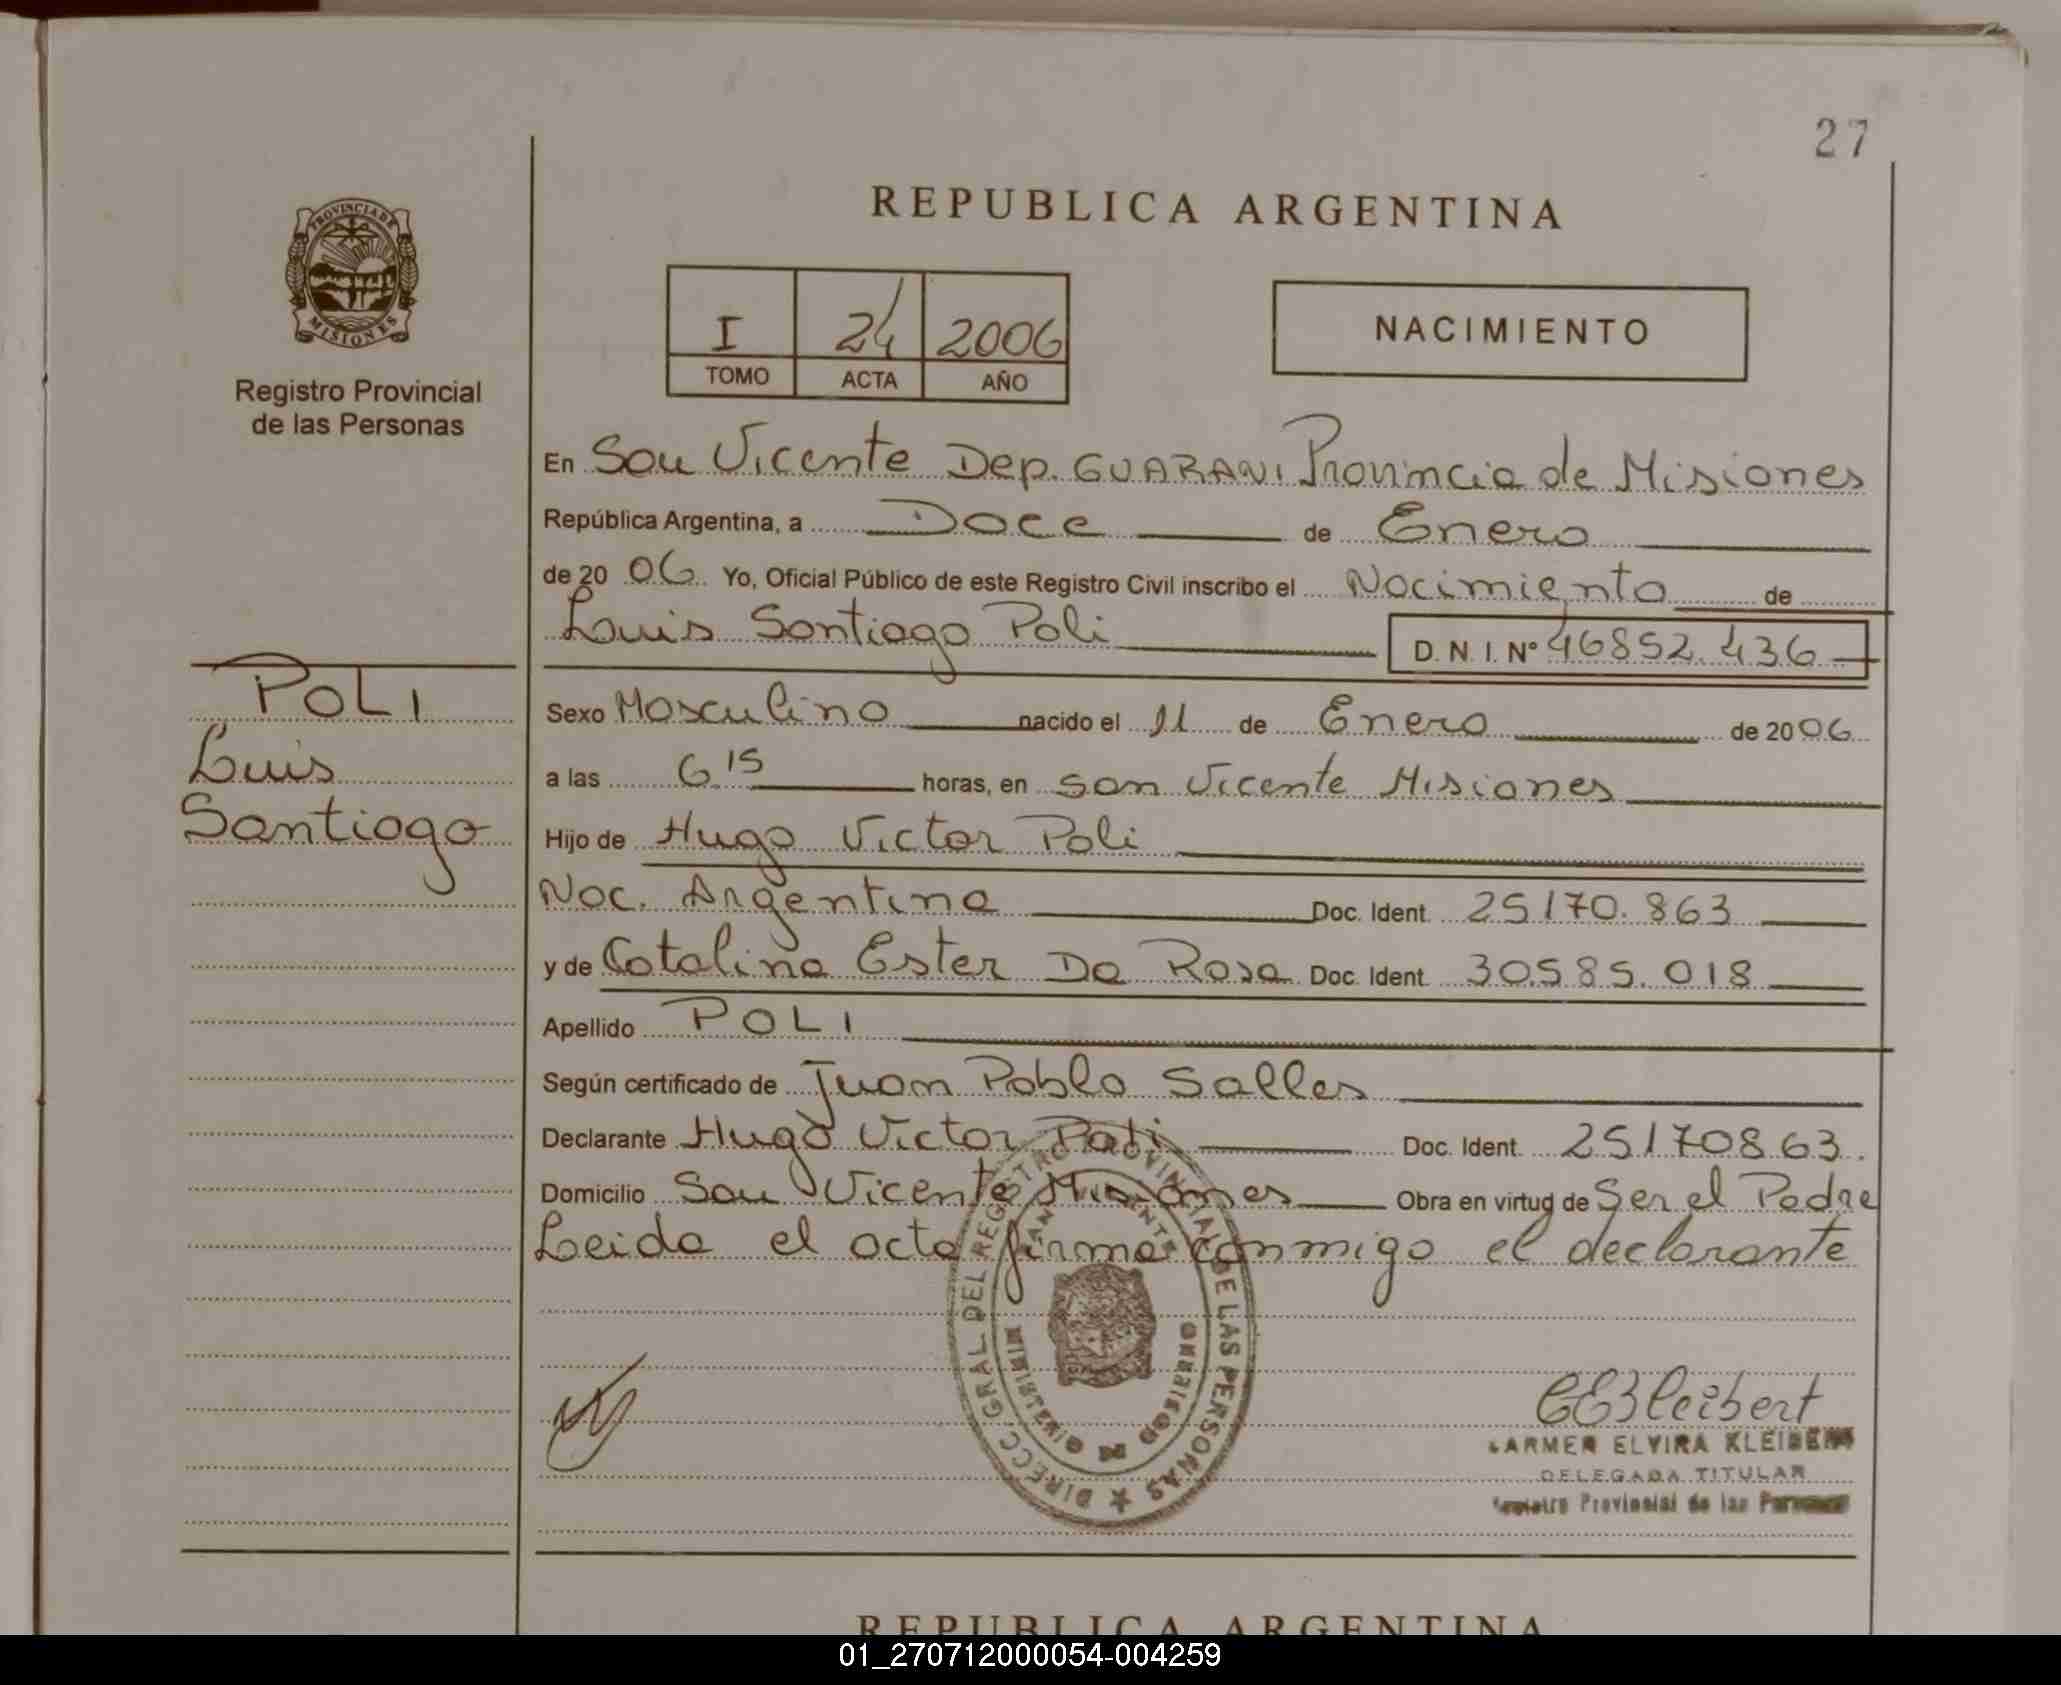 27
REPUBLICA ARGENTINA
PROVINCIA DE
MISIONES
Registro Provincial
de las Personas
I 24 2006
TOMO ACTA AÑO
NACIMIENTO
En San Vicente Dep. GUARANI Provincia de Misiones
República Argentina, a Doce de Enero
de 2006 Yo, Oficial Público de este Registro Civil inscribo el Nacimiento de
Luis Santiago Poli D. N. I. Nº 46852.436
POLI
Luis
Santiago
Sexo Masculino nacido el 11 de Enero de 2006
a las 6.15 horas, en San Vicente Misiones
Hijo de Hugo Victor Poli
Nac. Argentina Doc. Ident. 25170.863
y de Catalina Ester Da Rosa Doc. Ident. 30.585.018
Apellido POLI
Según certificado de Juan Pablo Salles
Declarante Hugo Victor Poli Doc. Ident. 25170863.
Domicilio San Vicente Misiones Obra en virtud de Ser el Padre
Leida el acta firma conmigo el declarante
DIRECC GRAL DEL REGISTRO PROVINCIAL DE LAS PERSONAS
SAN VICENTE
MINISTERIO DE GOBIERNO
CARMEN ELVIRA KLEIBERT
DELEGADA TITULAR
Registro Provincial de las Personas
REPUBLICA ARGENTINA
01_270712000054-004259